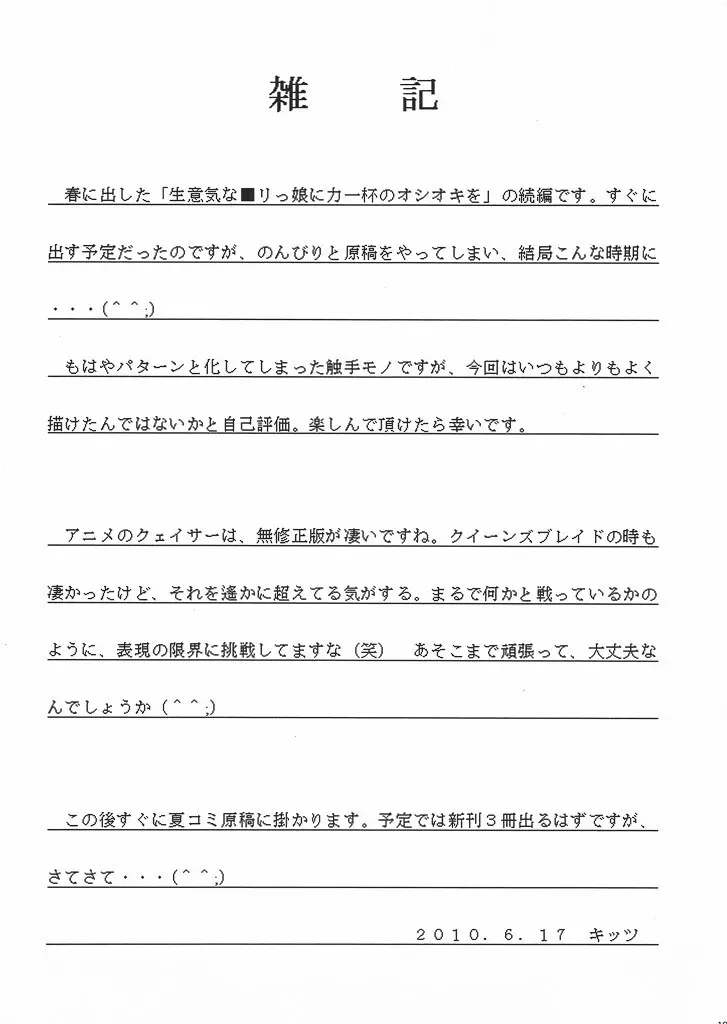 雑　記
春に出した「生意気な■リっ娘に力一杯のオシオキを」の続編です。すぐに
出す予定だったのですが、のんびりと原稿をやってしまい、結局こんな時期に
・・・(＾＾;)
もはやパターンと化してしまった触手モノですが、今回はいつもよりもよく
描けたんではないかと自己評価。楽しんで頂けたら幸いです。
アニメのクェイサーは、無修正版が凄いですね。クイーンズブレイドの時も
凄かったけど、それを遙かに超えてる気がする。まるで何かと戦っているかの
ように、表現の限界に挑戦してますな（笑）　あそこまで頑張って、大丈夫な
んでしょうか（＾＾;)
この後すぐに夏コミ原稿に掛かります。予定では新刊３冊出るはずですが、
さてさて・・・(＾＾;)
２０１０．６．１７　キッツ